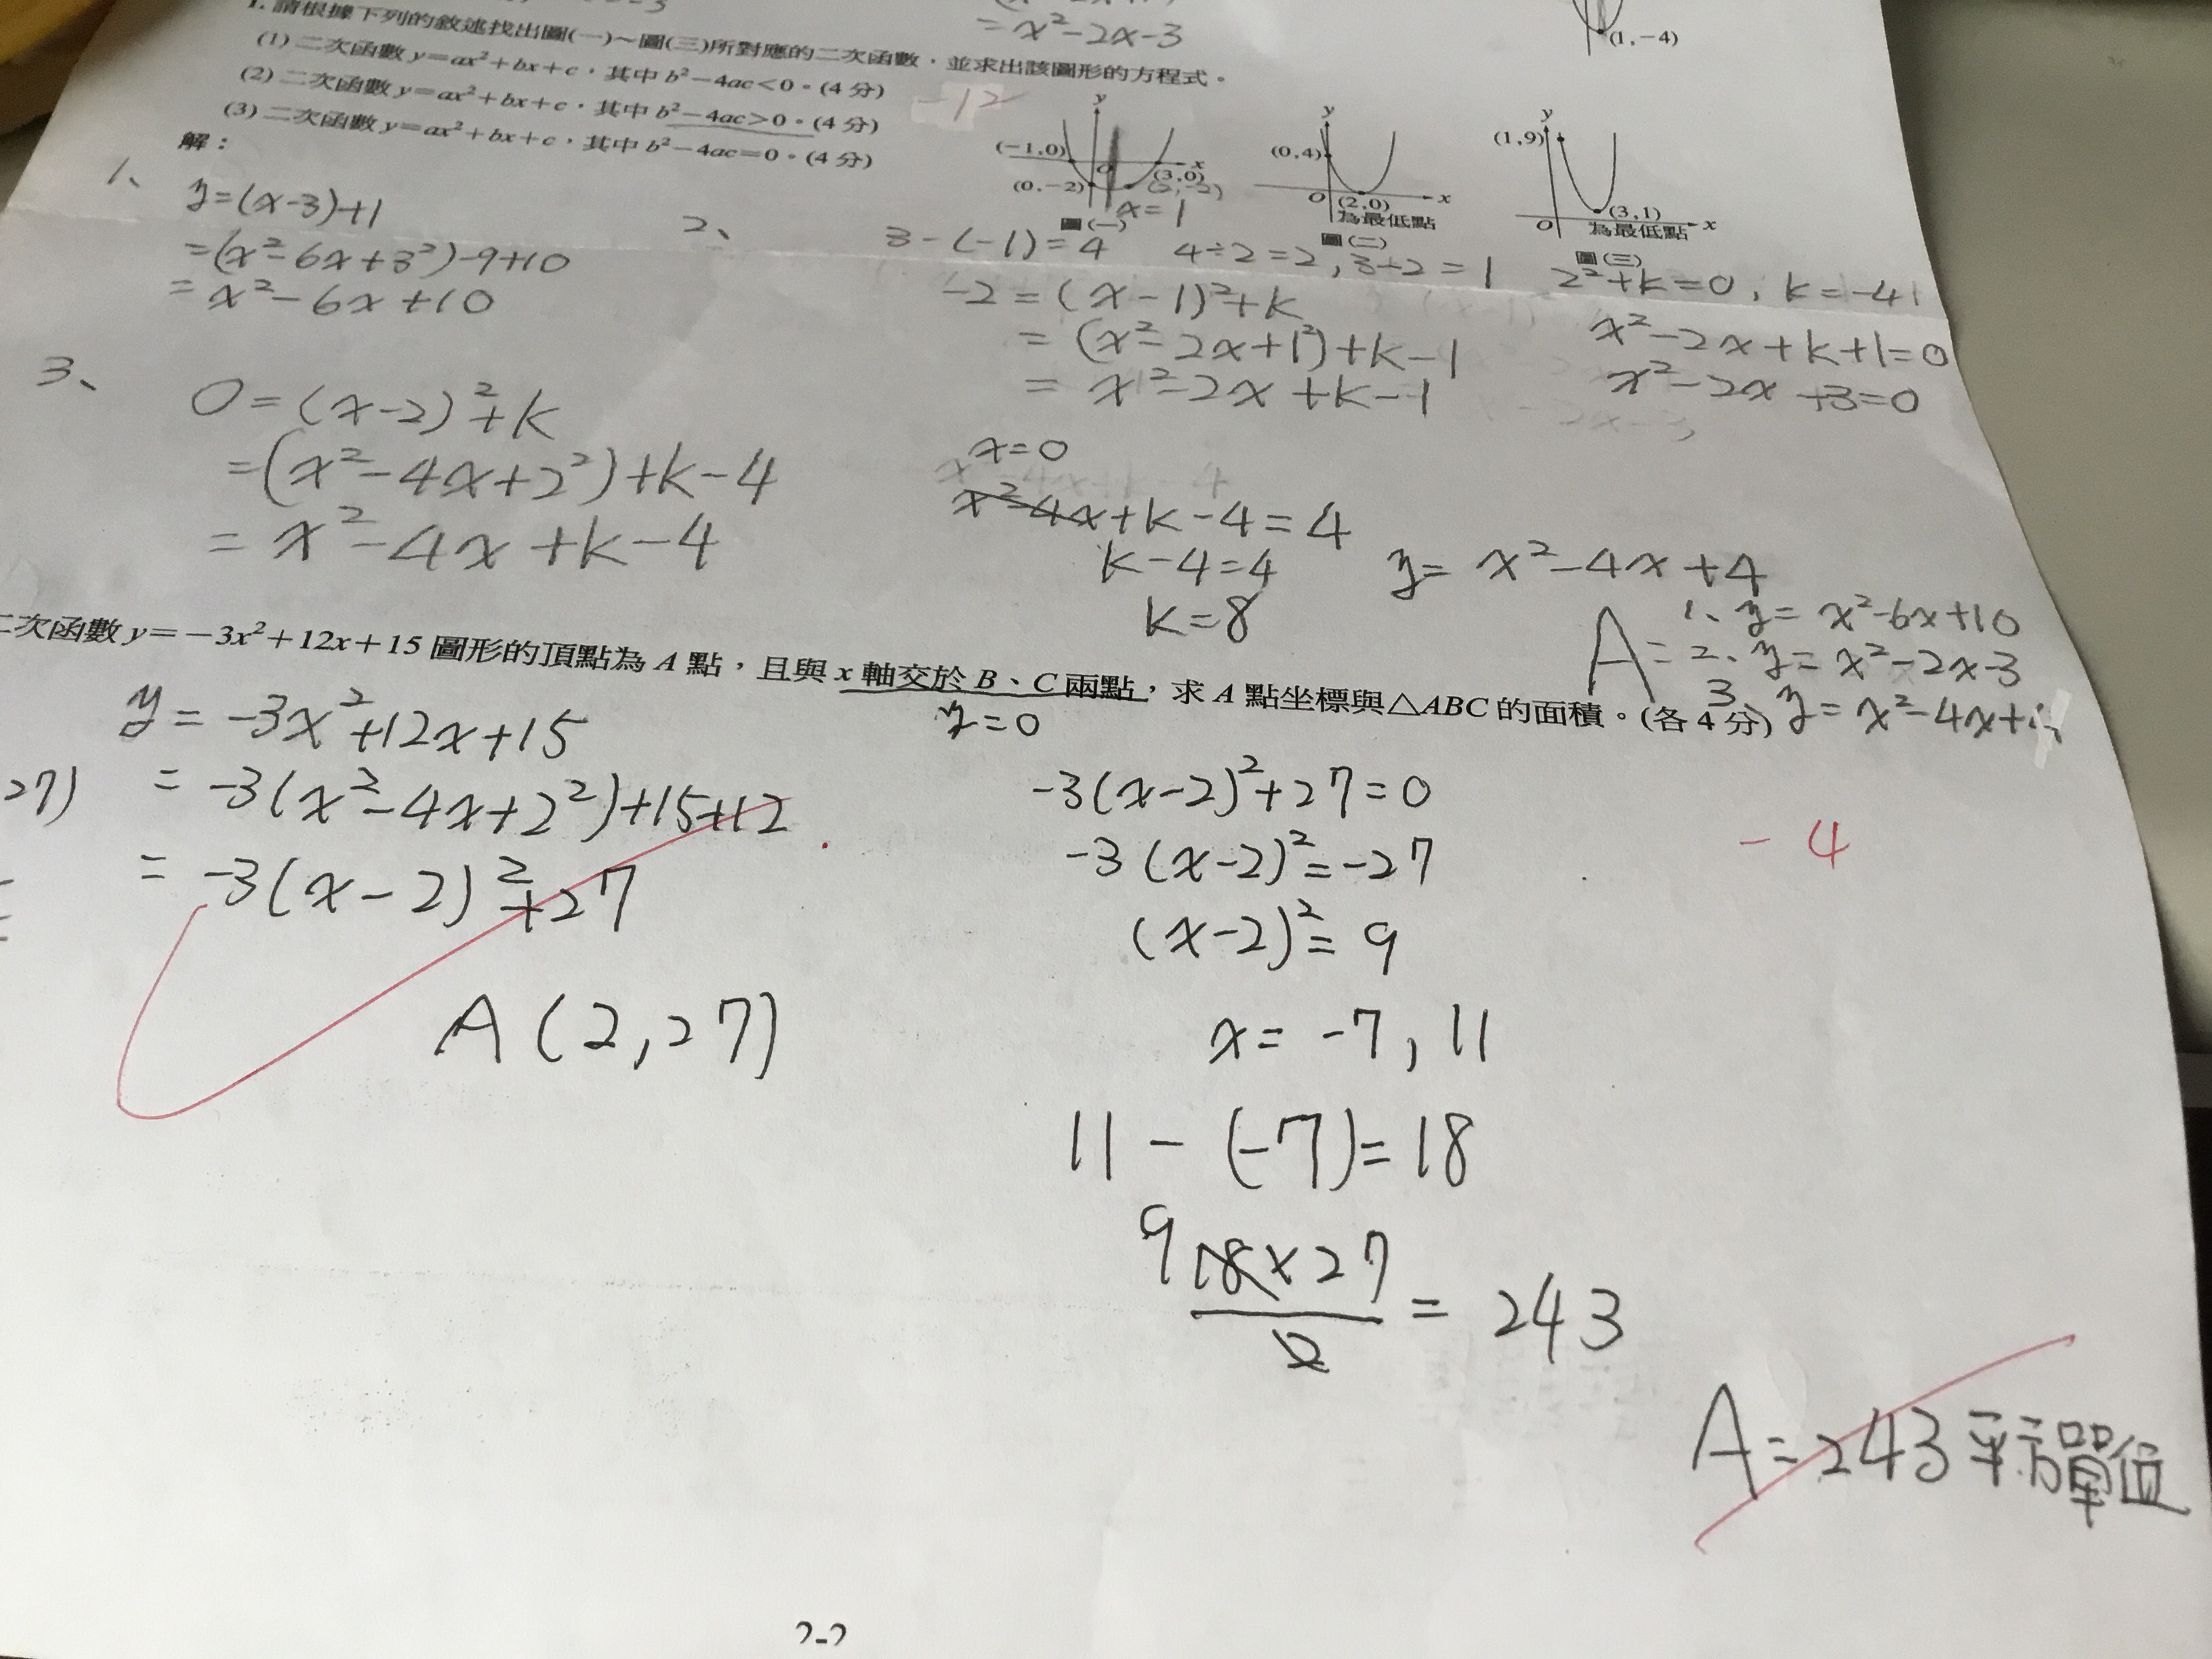 = x²-2x-3
(1,-4)
1. 請根據下列的敘述找出圖(一)～圖(三)所對應的二次函數，並求出該圖形的方程式。
(1) 二次函數 y=ax²+bx+c，其中 b²-4ac<0。(4分)
(2) 二次函數 y=ax²+bx+c，其中 b²-4ac>0。(4分)
(3) 二次函數 y=ax²+bx+c，其中 b²-4ac=0。(4分)
解：
-12
y
(-1,0)
O
x
(3,0)
(0,-2)
(2,-2)
x=1
圖(一)
y
(0,4)
O
(2,0)
x
為最低點
圖(二)
y
(1,9)
O
(3,1)
x
為最低點
圖(三)
1、
y=(x-3)+1
=(x²-6x+3²)-9+10
= x²-6x+10
2、
3-(-1)=4 4÷2=2, 3-2=1 2²+k=0, k=-4
-2=(x-1)²+k
=(x²-2x+1²)+k-1
= x²-2x+k-1
x²-2x+k+1=0
x²-2x+3=0
3、
0=(x-2)²+k
=(x²-4x+2²)+k-4
= x²-4x+k-4
x=0
x²-4x+k-4=4
k-4=4
k=8
y= x²-4x+4
A= 1、y= x²-6x+10
2、y= x²-2x-3
3、y= x²-4x+
二次函數 y=-3x²+12x+15 圖形的頂點為 A 點，且與 x 軸交於 B、C 兩點，求 A 點坐標與△ABC 的面積。(各 4 分)
y=0
y= -3x²+12x+15
27) = -3(x²-4x+2²)+15+12
= -3(x-2)²+27
A(2,27)
-3(x-2)²+27=0
-3(x-2)²=-27
(x-2)²=9
x= -7, 11
11-(-7)=18
9
18×27
2
= 243
-4
A=243平方單位
2-2